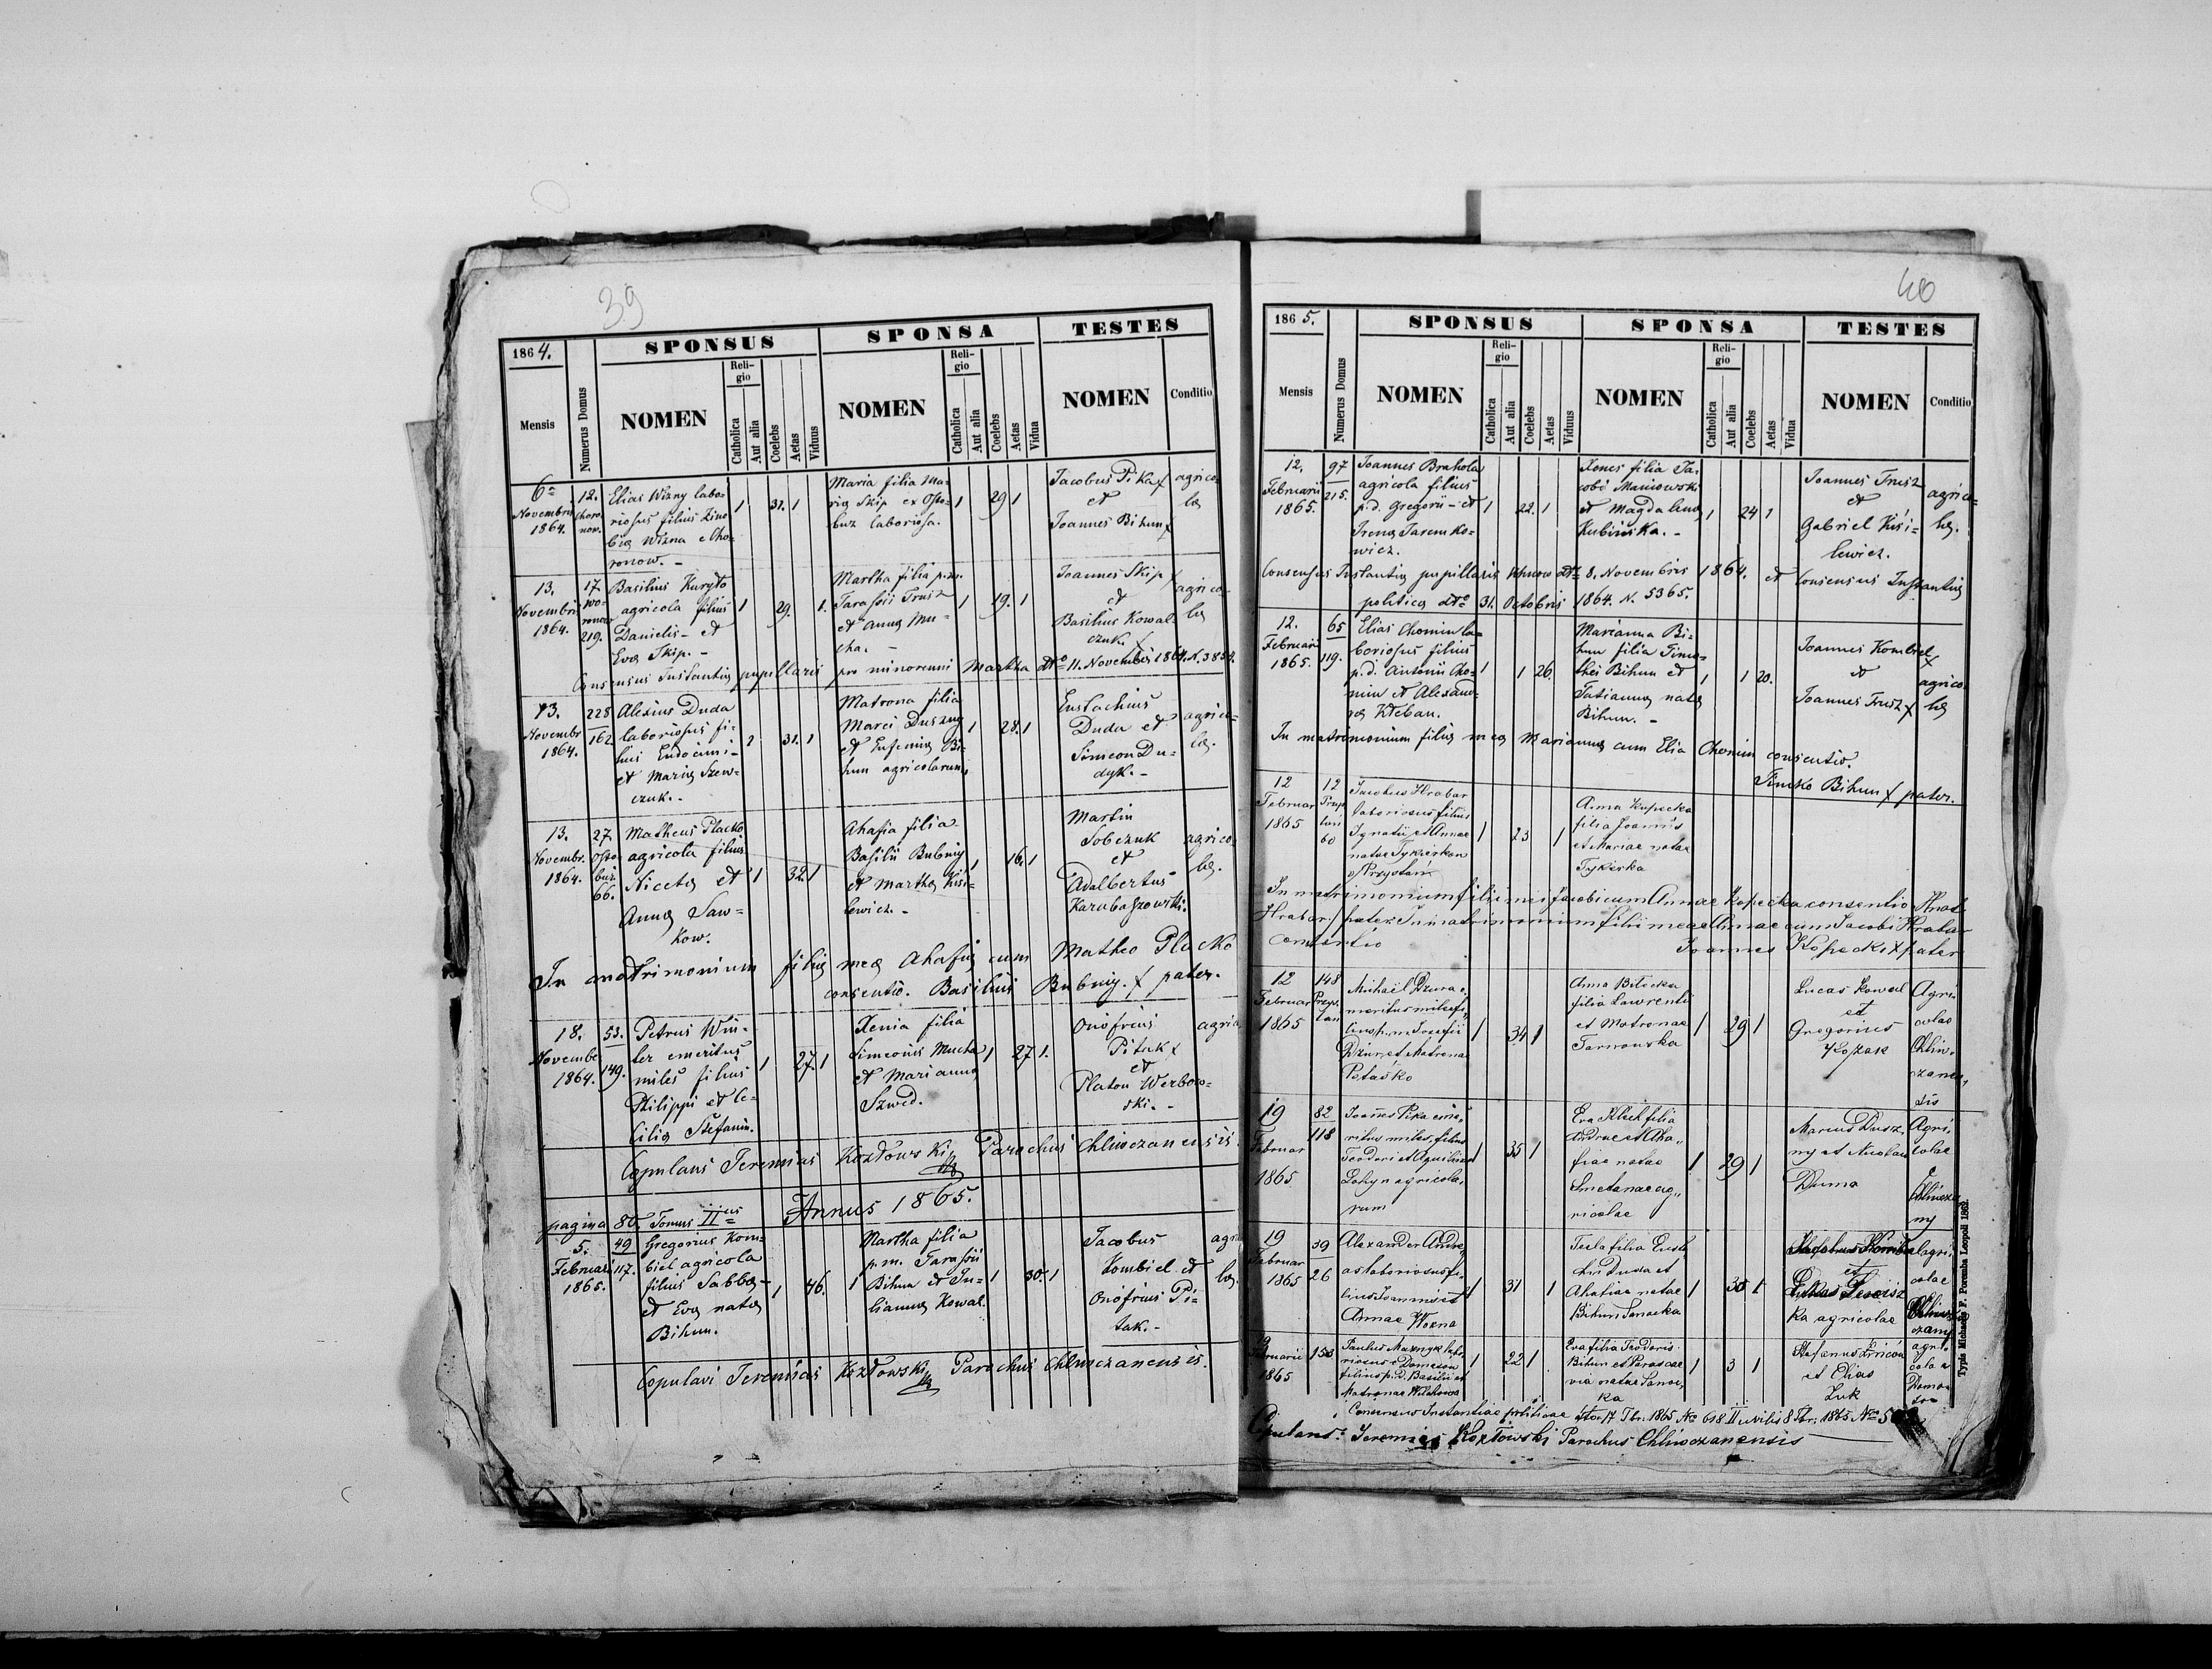 39
1864.
SPONSUS
SPONSA
TESTES
Mensis
Numerus Domus
NOMEN
Religio
Catholica
Aut alia
Coelebs
Aetas
Viduus
NOMEN
Religio
Catholica
Aut alia
Coelebs
Aetas
Vidua
NOMEN
Conditio
6ª
Novembris
1864.
12.
Choro-
now.
Elias Wizny labo-
riosus filius Zino-
bia Wizna e Cho-
ronow. -
1 31. 1
Maria filia Ma-
ria Skip ex Osto-
buz laboriosa.
1 29 1
Jacobus Pika +
et
Joannes Bihun +
agrico-
la
13.
Novembris
1864.
17.
Wo-
ronow
219.
Basilius Kuryło
agricola filius
Danielis - et
Eva Skip. -
1 29. 1.
Martha filia p.m.
Tarasii Trusz
et Anna Mu-
cha. -
1 19. 1
Joannes Skip +
et
Basilius Kowal-
czuk. +
agrico-
la
Consensus Instantia pupillaris pro minorenni Martha dto 11. Novembris 1864. N. 3854.
13.
Novembr
1864.
228
162.
Alexius Duda
laboriosus fi-
lius Eudocimi -
et Maria Szew-
czuk. -
1 31. 1
Matrona filia
Marci Duszny
et Eufemia Bi-
hun agricolarum,
1 28. 1
Eustachius
Duda et
Simeon Du-
dyk. -
agrico-
la.
13.
Novembr.
1864.
27.
Osto-
buż.
66.
Matheus Placko
agricola filius
Niceta et
Anna Saw-
kow.
1 32. 1
Ahafia filia
Basilii Bubniy
et Martha Kisi-
lewicz. -
1 16. 1
Martin
Sobczuk
et
Adalbertus
Karabaszowski.
agrico-
la.
In matrimonium filia mea Ahafia cum Matheo Placko
consentio. Basilius Bubniy. + pater.
18.
November
1864.
53.
149.
Petrus Win-
ter emeritus
miles filius
Philippi et Ce-
cilia Stefanin.
1 27. 1
Xenia filia
Simeonis Mucha
et Marianna
Szwed.
1 27 1.
Onofrius
Pitak +
et
Platon Werbow-
ski. -
agrico
Copulans Jeremias Kozłowski Parochus Chliwczanensis.
pagina 80. Tomus IIus Annus 1865.
5.
Februarii
1865.
49
117.
Gregorius Kom-
biel agricola
filius Sabba -
et Eva nata
Bihun.
1 46. 1
Martha filia
p.m. Tarasii
Bihun et Ju-
lianna Kowal.
1 30. 1
Jacobus
Kombiel et
Onofrius Pi-
tak. -
agri
la.
Copulavi Jeremias Kozłowski Parochus Chliwczanensis.
40
1865.
SPONSUS
SPONSA
TESTES
Mensis
Numerus Domus
NOMEN
Religio
Catholica
Aut alia
Coelebs
Aetas
Viduus
NOMEN
Religio
Catholica
Aut alia
Coelebs
Aetas
Vidua
NOMEN
Conditio
12.
Februarii
1865.
97
215.
Joannes Brahola
agricola filius
p.d. Gregorii - et
Irena Jaremko-
wicz.
1 22. 1
Xenes filia Ja-
cobi Maniowski
et Magdalena
Kubinska. -
1 24 1
Joannes Trusz
et
Gabriel Kisi-
lewicz.
agrico-
la.
Consensus Instantia pupillaris Uhnow dto 8. Novembris 1864. et Consensus Instantia
politica dto 31. Octobris 1864. N. 5365.
12.
Februarii
1865.
65
119.
Elias Chomin la-
boriosus filius
p.d. Antonii Cho-
min et Alexand-
ra Kteban.
1 1 26.
Marianna Bi-
hun filia Timo-
thei Bihun et
Tatianna nata
Bihun. -
1 1 20.
Joannes Kombiel +
et
Joannes Trusz +
agrico-
la
In matrimonium filia mea Marianna cum Elia Chomin consentio.
Timko Bihun + pater.
12
Februar
1865
12
Przys
tań
60
Jacobus Hrabar
laboriosus filius
Ignatii et Annae
natae Tykierkan
e Przystań
1 23 1
Anna Kopecka
filia Joannis
et Mariae natae
Tykierka
In matrimonium filii mei Jacobi cum Annae Kopecka consentio Hnat
Hrabar + pater. In matrimonium filii meae Annae cum Jacobi Hrabar
consentio Joannes Kopecki + pater
12
Februar
1865
148
Przys-
tan
Michaël Dzura e-
meritus miles fi-
lius p.m. Josefii
Dzur, et Matrona
Potaśko
1 34 1
Anna Biłocka
filia Lawrentii
et Matronae
Tarnawska
1 29 1
Lucas Kowal
et
Gregorius
Kozak
Agri-
colae
Chliw-
czanen-
sis
19
Februar
1865
82
118
Joannes Pika eme-
ritus miles, filius
Teodori et Aquilina
Łahyn agricola-
rum
1 35 1
Eva Klech filia
Andreae et Aha-
fiae natae
Smetanae ag-
ricolae
1 29 1
Marcus Dusz-
ny et Nicolaus
Duma
Agri-
colae
e
Chliwcza
ny
19
Februar
1865
39
26
Alexander Andre-
as laboriosus fi-
lius Joannis et
Annae Wozna
1 31 1
Tecla filia Eusta-
chii Duda et
Ahafiae natae
Bihun Sanocka
1 30 1
et
ka agricolae
agri
colae
Chliw-
czany
19
Februarii
1865
153
Paulus Maznyk labo-
riosus e Domaszow
filius p.d. Basilii et
Matronae Wilchowa
1 22 1
Eva filia Teodoris
Bihun et Parasce-
via natae Sanoc-
ka
1 3 1
Stefanus Hricow
et Elias
Żuk
agri-
colae
Doma-
szo
Consensus Instantiae politicae dto 17 Tbr. 1865 No 618 II uvilis 8 Tbr. 1865 No
Copulans: Jeremias Kozłowski Parochus Chliwczanensis
Typis Michaelis F. Poremba Leopoli 1862.